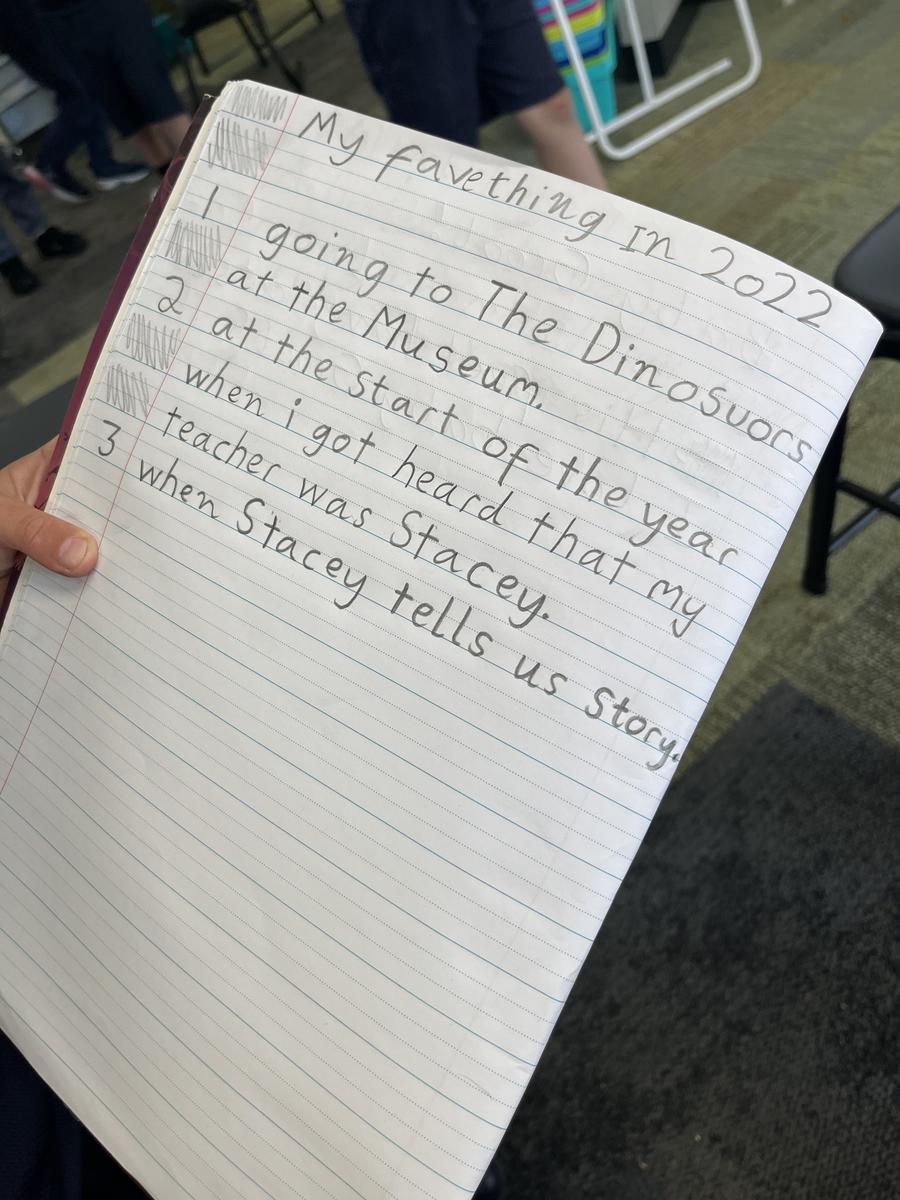 My favething in 2022
1 going to The Dinosuors
at the Museum.
2 at the start of the year
when i got heard that my
teacher was Stacey.
3 when Stacey tells us Story.